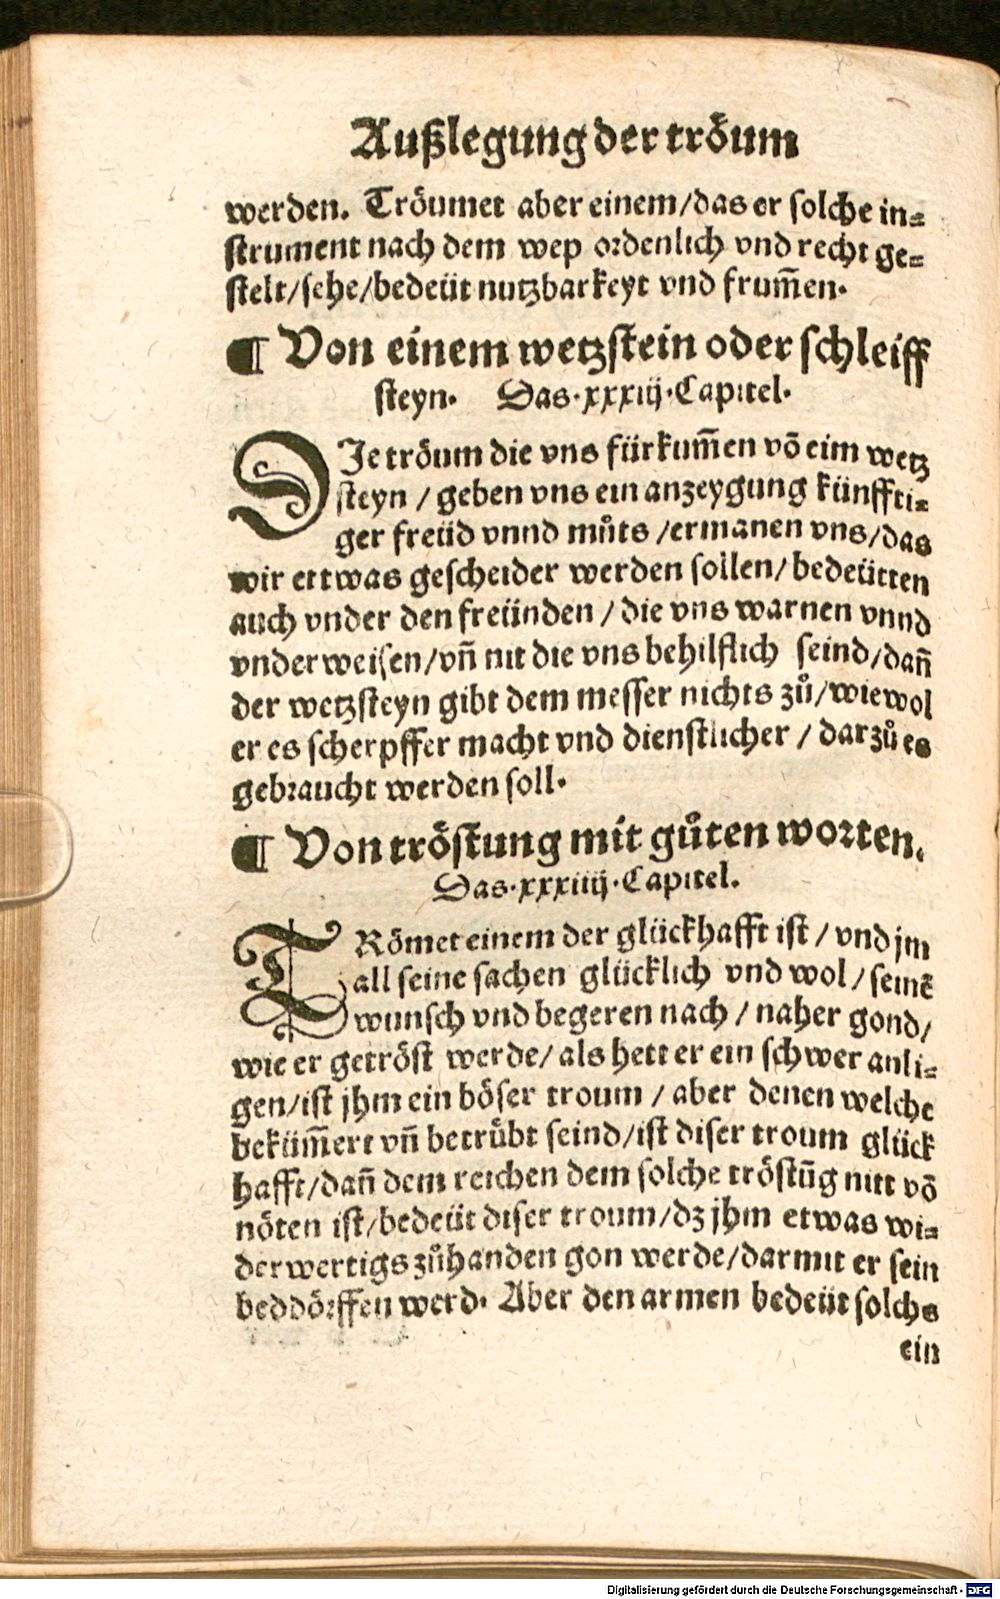 Außlegung der tröum
werden. Tröumet aber einem/das er solche in⸗
strument nach dem wep ordenlich vnd recht ge⸗
stelt/sehe/bedeüt nutzbarkeyt vnd frum̄en.
¶ Von einem wetzstein oder schleiff
steyn. Das.xxxiij.Capitel.
DIe tröum die vns fürkum̄en vō eim wetz
steyn / geben vns ein anzeygung künffti⸗
ger freüd vnnd můts /ermanen vns/das
wir ettwas gescheider werden sollen/ bedeütten
auch vnder den freünden / die vns warnen vnnd
vnderweisen/vn̄ nit die vns behilflich seind/dan̄
der wetzsteyn gibt dem messer nichts zů/wiewol
er es scherpffer macht vnd dienstlicher / darzů es
gebraucht werden soll.
¶ Von tröstung mit gůten worten.
Das.xxxiiij.Capitel.
TRömet einem der glückhafft ist / vnd jm
all seine sachen glücklich vnd wol / seinē
wunsch vnd begeren nach / naher gond/
wie er getröst werde/ als hett er ein schwer anli⸗
gen/ist jhm ein böser troum / aber denen welche
beküm̄ert vn̄ betrübt seind/ist diser troum glück
hafft/dan̄ dem reichen dem solche tröstūg nitt vō
nöten ist/bedeüt diser troum/dz jhm etwas wi⸗
derwertigs zůhanden gon werde/darmit er sein
beddörffen werd. Aber den armen bedeüt solchs
ein
Digitalisierung gefördert durch die Deutsche Forschungsgemeinschaft - DFG